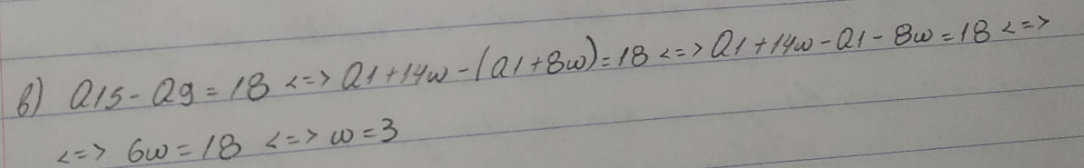 β) α15 - α9 = 18 <=> α1 + 14ω - (α1 + 8ω) = 18 <=> α1 + 14ω - α1 - 8ω = 18 <=>
<=> 6ω = 18 <=> ω = 3